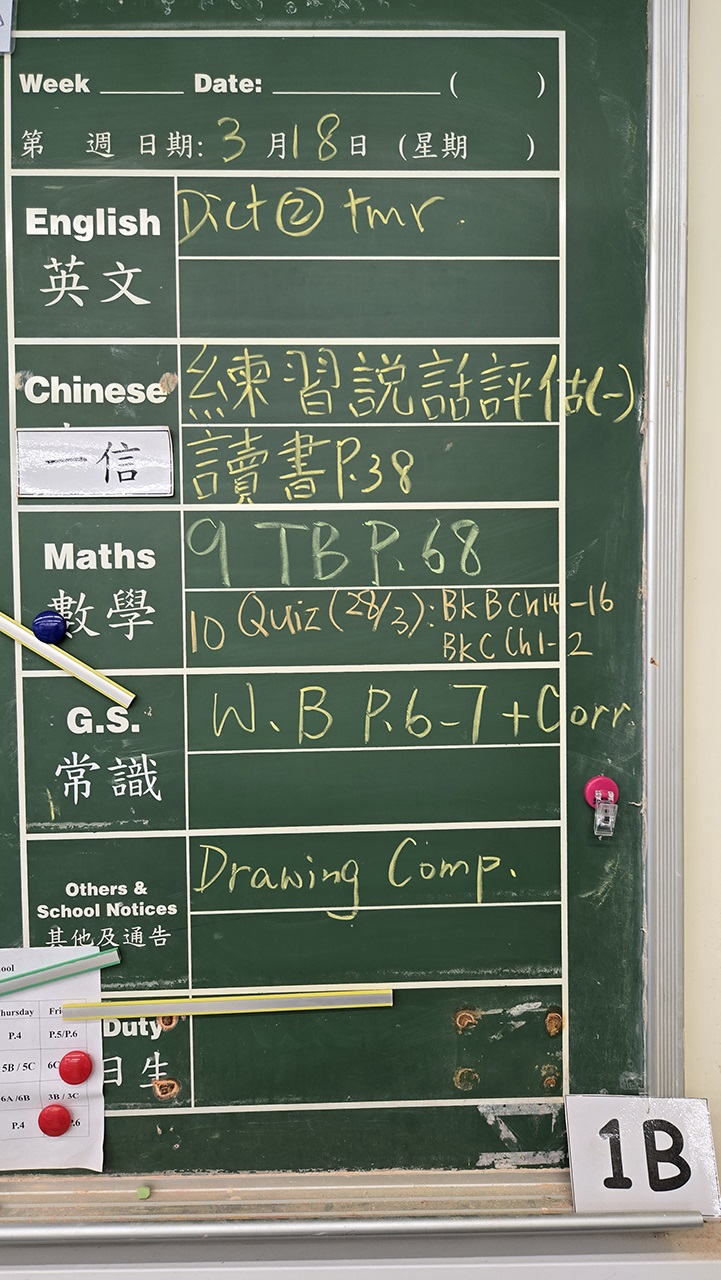 Week ______ Date: ____________ ( )
第 週 日期: 3 月 18 日 (星期 )
English
英文
Dict ② tmr.
Chinese
一信
練習説話評估(一)
讀書P.38
Maths
數學
9 TB P.68
10 Quiz (28/3): Bk B Ch14-16
Bk C Ch1-2
G.S.
常識
W.B P.6-7 + Corr.
Others &
School Notices
其他及通告
Drawing Comp.
Duty
日生
ool
hursday Fri
P.4 P.5/P.6
5B / 5C 6C
6A /6B 3B / 3C
P.4 .6
1B